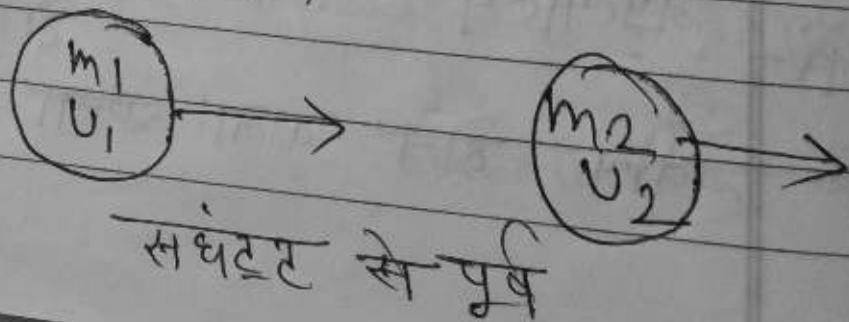 m1
U1
m2
U2
सघंट्ट से पूर्व